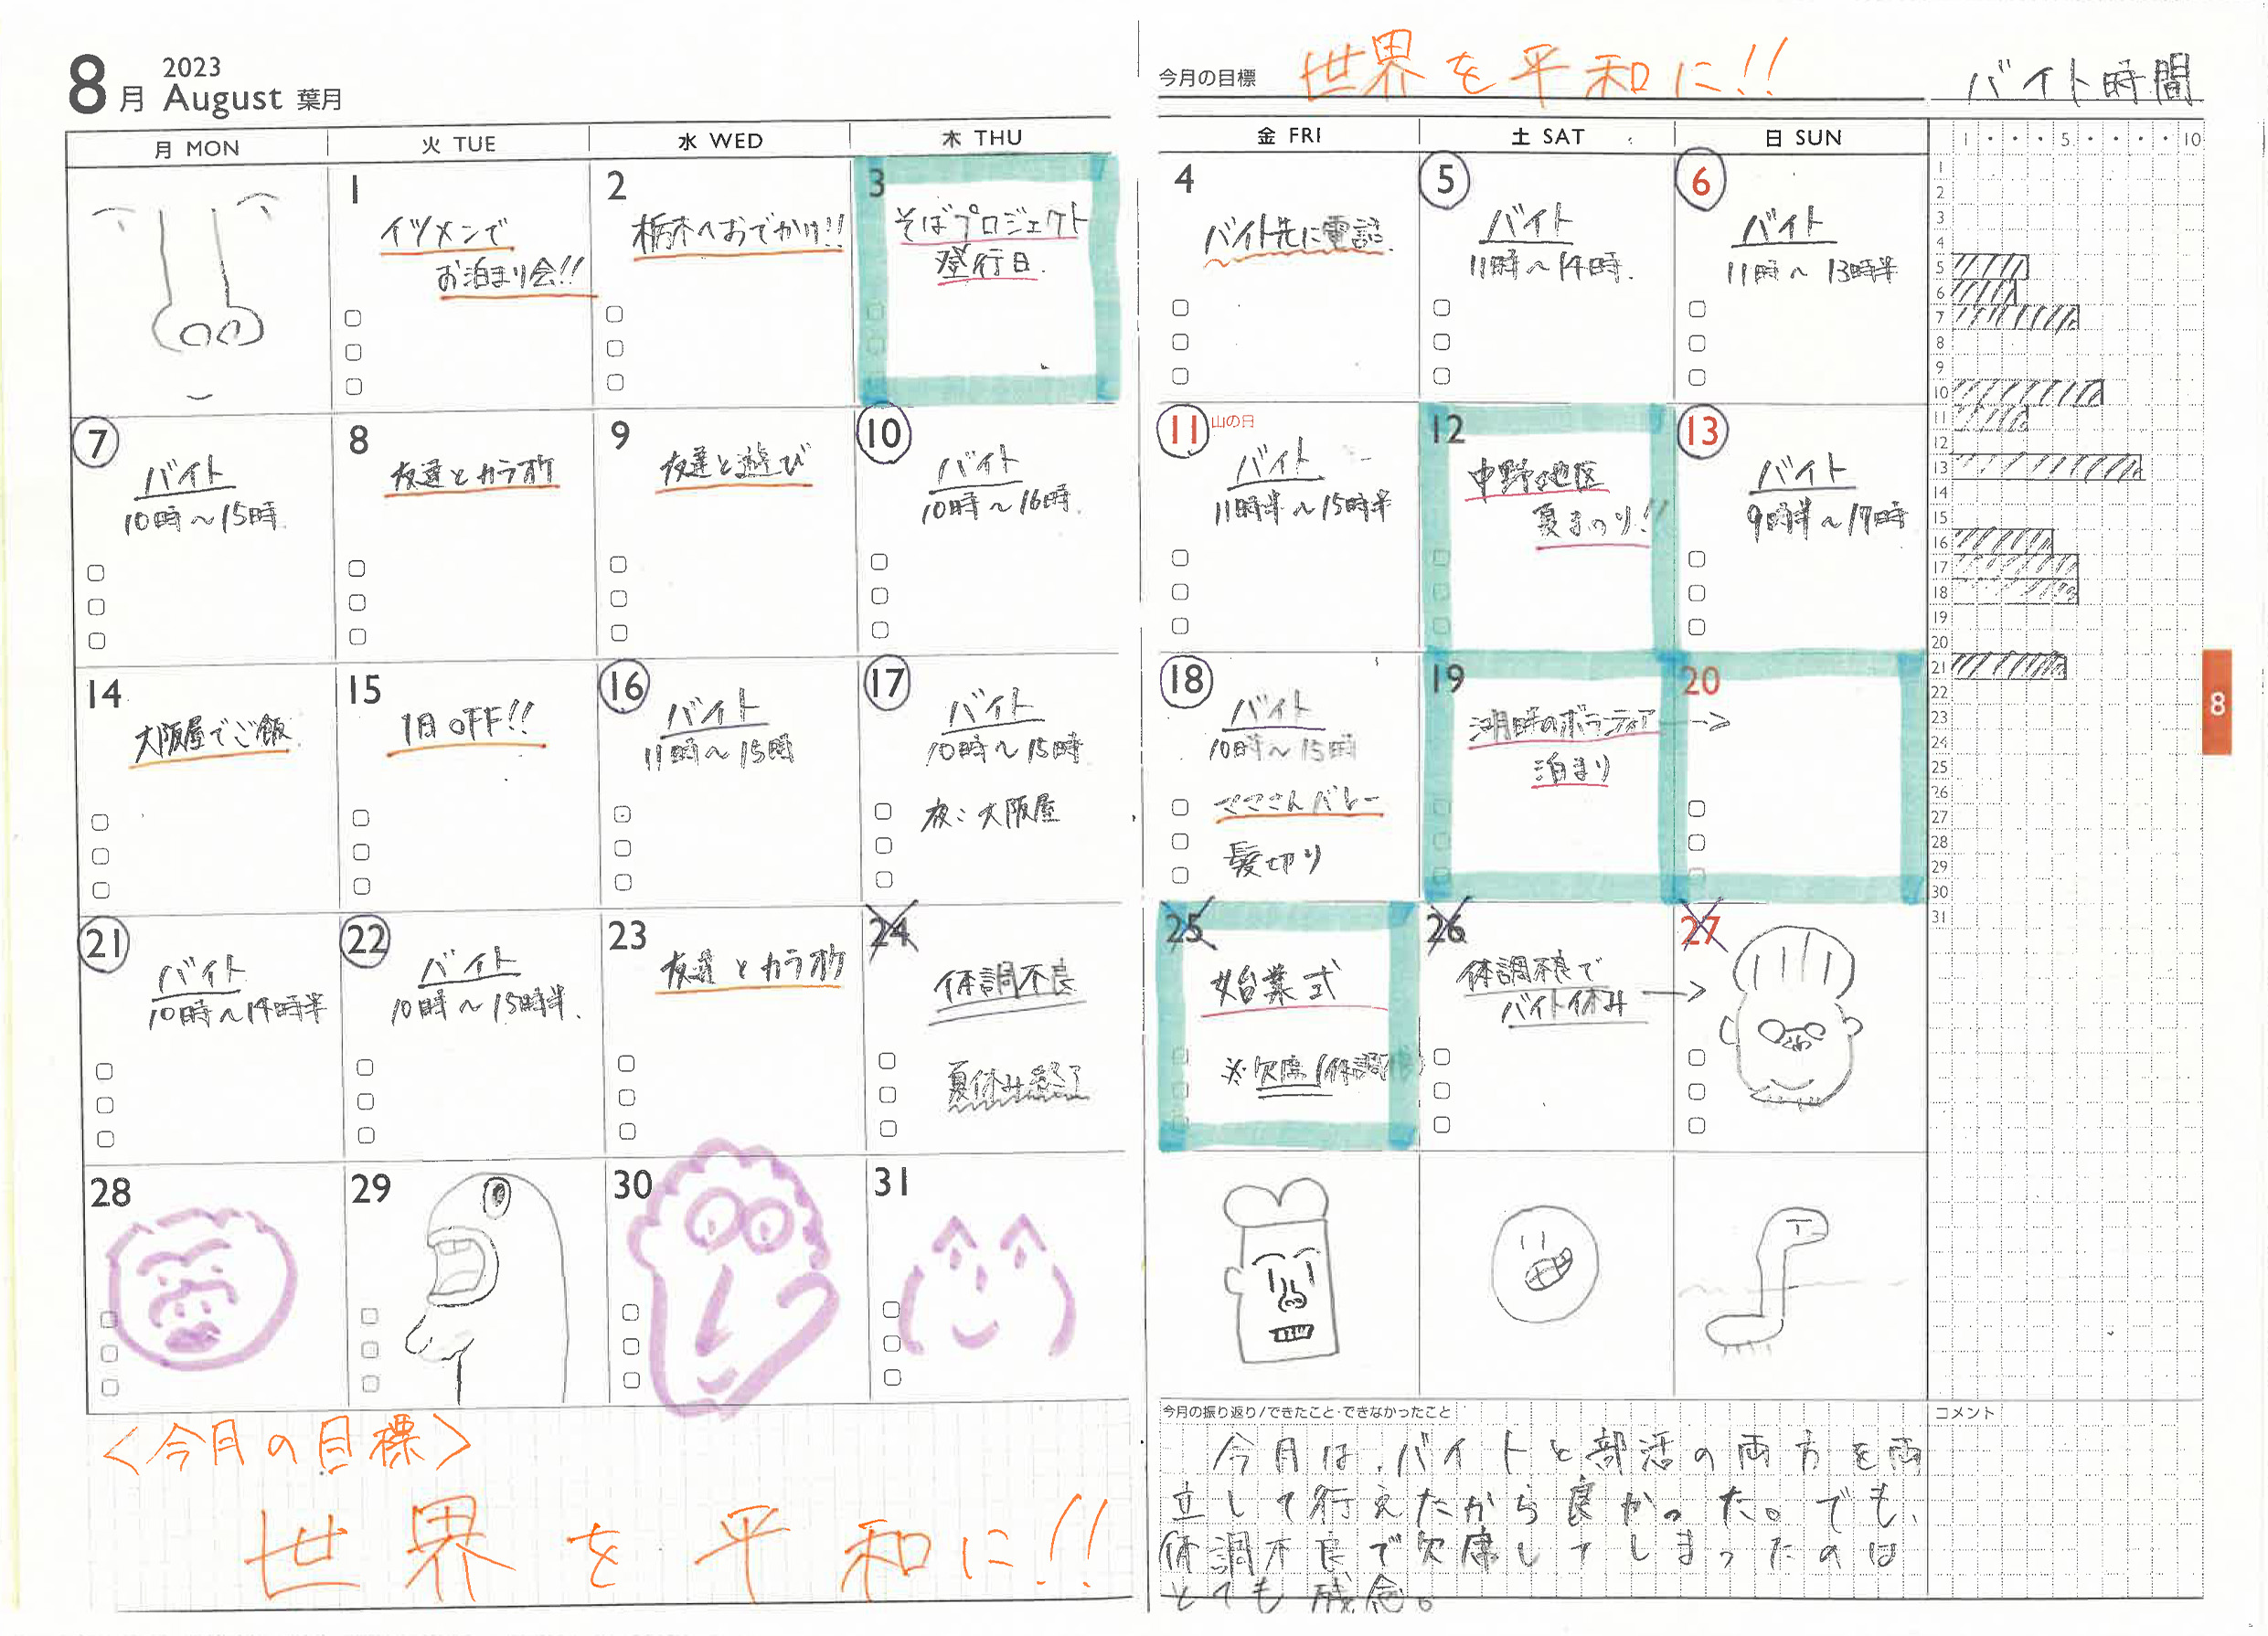 8月 2023 August 葉月
今月の目標 世界を平和に!!
バイト時間
月 MON 火 TUE 水 WED 木 THU 金 FRI 土 SAT 日 SUN
1 5 10
1
イツメンで
お泊まり会!!
2
栃木へおでかけ!!
3
そばプロジェクト
登行日
4
バイト先に電話
5
バイト
11時〜14時
6
バイト
11時〜13時半
7
バイト
10時〜15時
8
友達とカラオケ
9
友達と遊び
10
バイト
10時〜16時
11 山の日
バイト
11時半〜15時半
12
中野地区
夏まつり!!
13
バイト
9時半〜17時
14
大阪屋でご飯
15
1日OFF!!
16
バイト
11時〜15時
17
バイト
10時〜15時
夜:大阪屋
18
バイト
10時〜15時
ママさんバレー
髪切り
19
のボランティア→
泊まり
20
21
バイト
10時〜14時半
22
バイト
10時〜15時半
23
友達とカラオケ
24
体調不良
夏休み終了
25
始業式
※欠席(体調不良)
26
体調不良で
バイト休み→
27
28
29
30
31
1
2
3
4
5
6
7
8
9
10
11
12
13
14
15
16
17
18
19
20
21
22
23
24
25
26
27
28
29
30
31
8
<今月の目標>
世界を平和に!!
今月の振り返り/できたこと・できなかったこと
今月は、バイトと部活の両方を両
立して行えたから良かった。でも、
体調不良で欠席してしまったのは
とても残念。
コメント